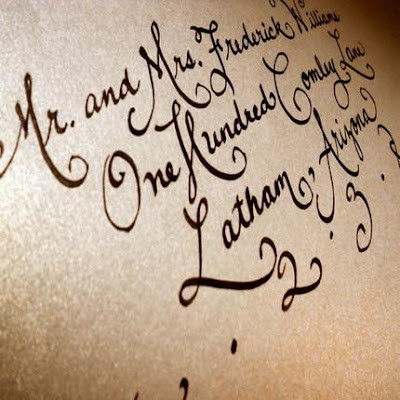 Mr. and Mrs. Frederick Williams
One Hundred Comley Lane
Latham, Arizona
2 . 3 .